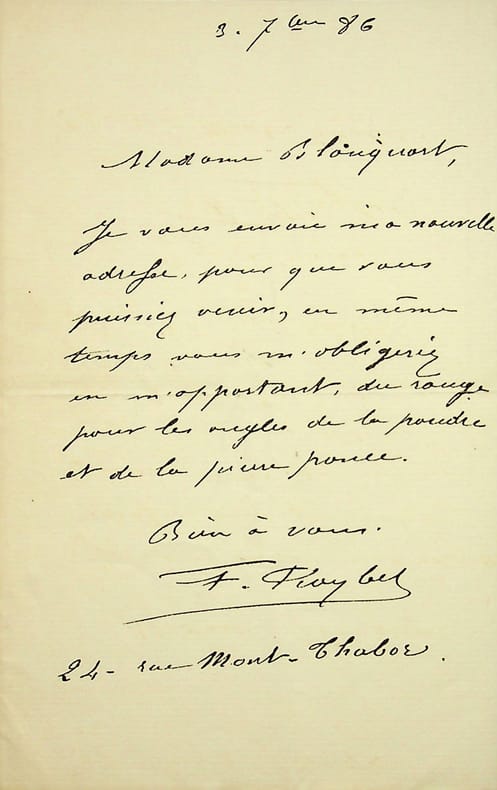 3. 7bre 86
Madame Blouquart,
Je vous envoie ma nouvelle
adresse, pour que vous
puissiez venir, en même
temps vous m'obligeriez
en m'apportant, du rouge
pour les ongles de la poudre
et de la pierre ponce.
Bien à vous.
F. Roybet
24- rue Mont-Thabor.